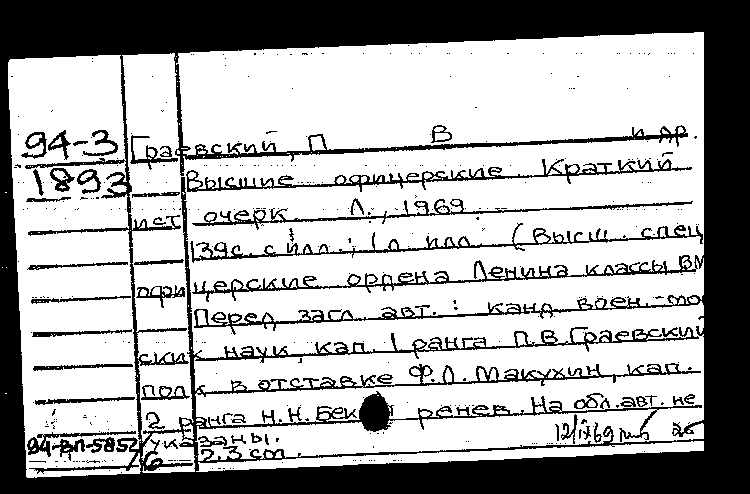 94-3 Граевский, П В и др.
1893 Высшие офицерские Краткий
ист очерк Л., 1969
139с. с илл.; 1л илл. (Высш. спец
офицерские ордена Ленина классы ВМ
Перед загл. авт.: канд воен.-мо
ских наук, кап. 1 ранга П.В.Граевский
полк в отставке Ф.Л.Макухин, кап.
2 ранга Н.Н. ренев. На обл.авт. не
указаны.
94-ВП-5852/6 2.3 cm. 12/IX 69